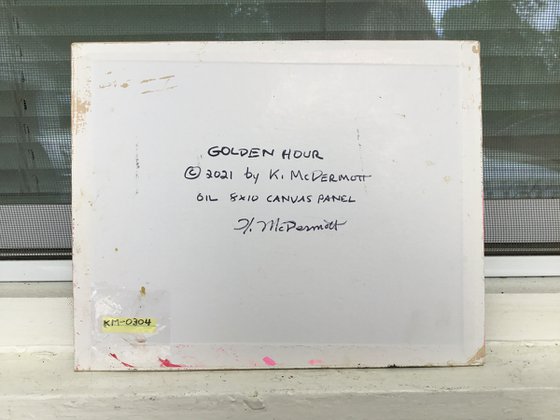 GOLDEN HOUR
© 2021 by K. McDERMOTT
OIL 8x10 CANVAS PANEL
K. McDermott
KM-0304